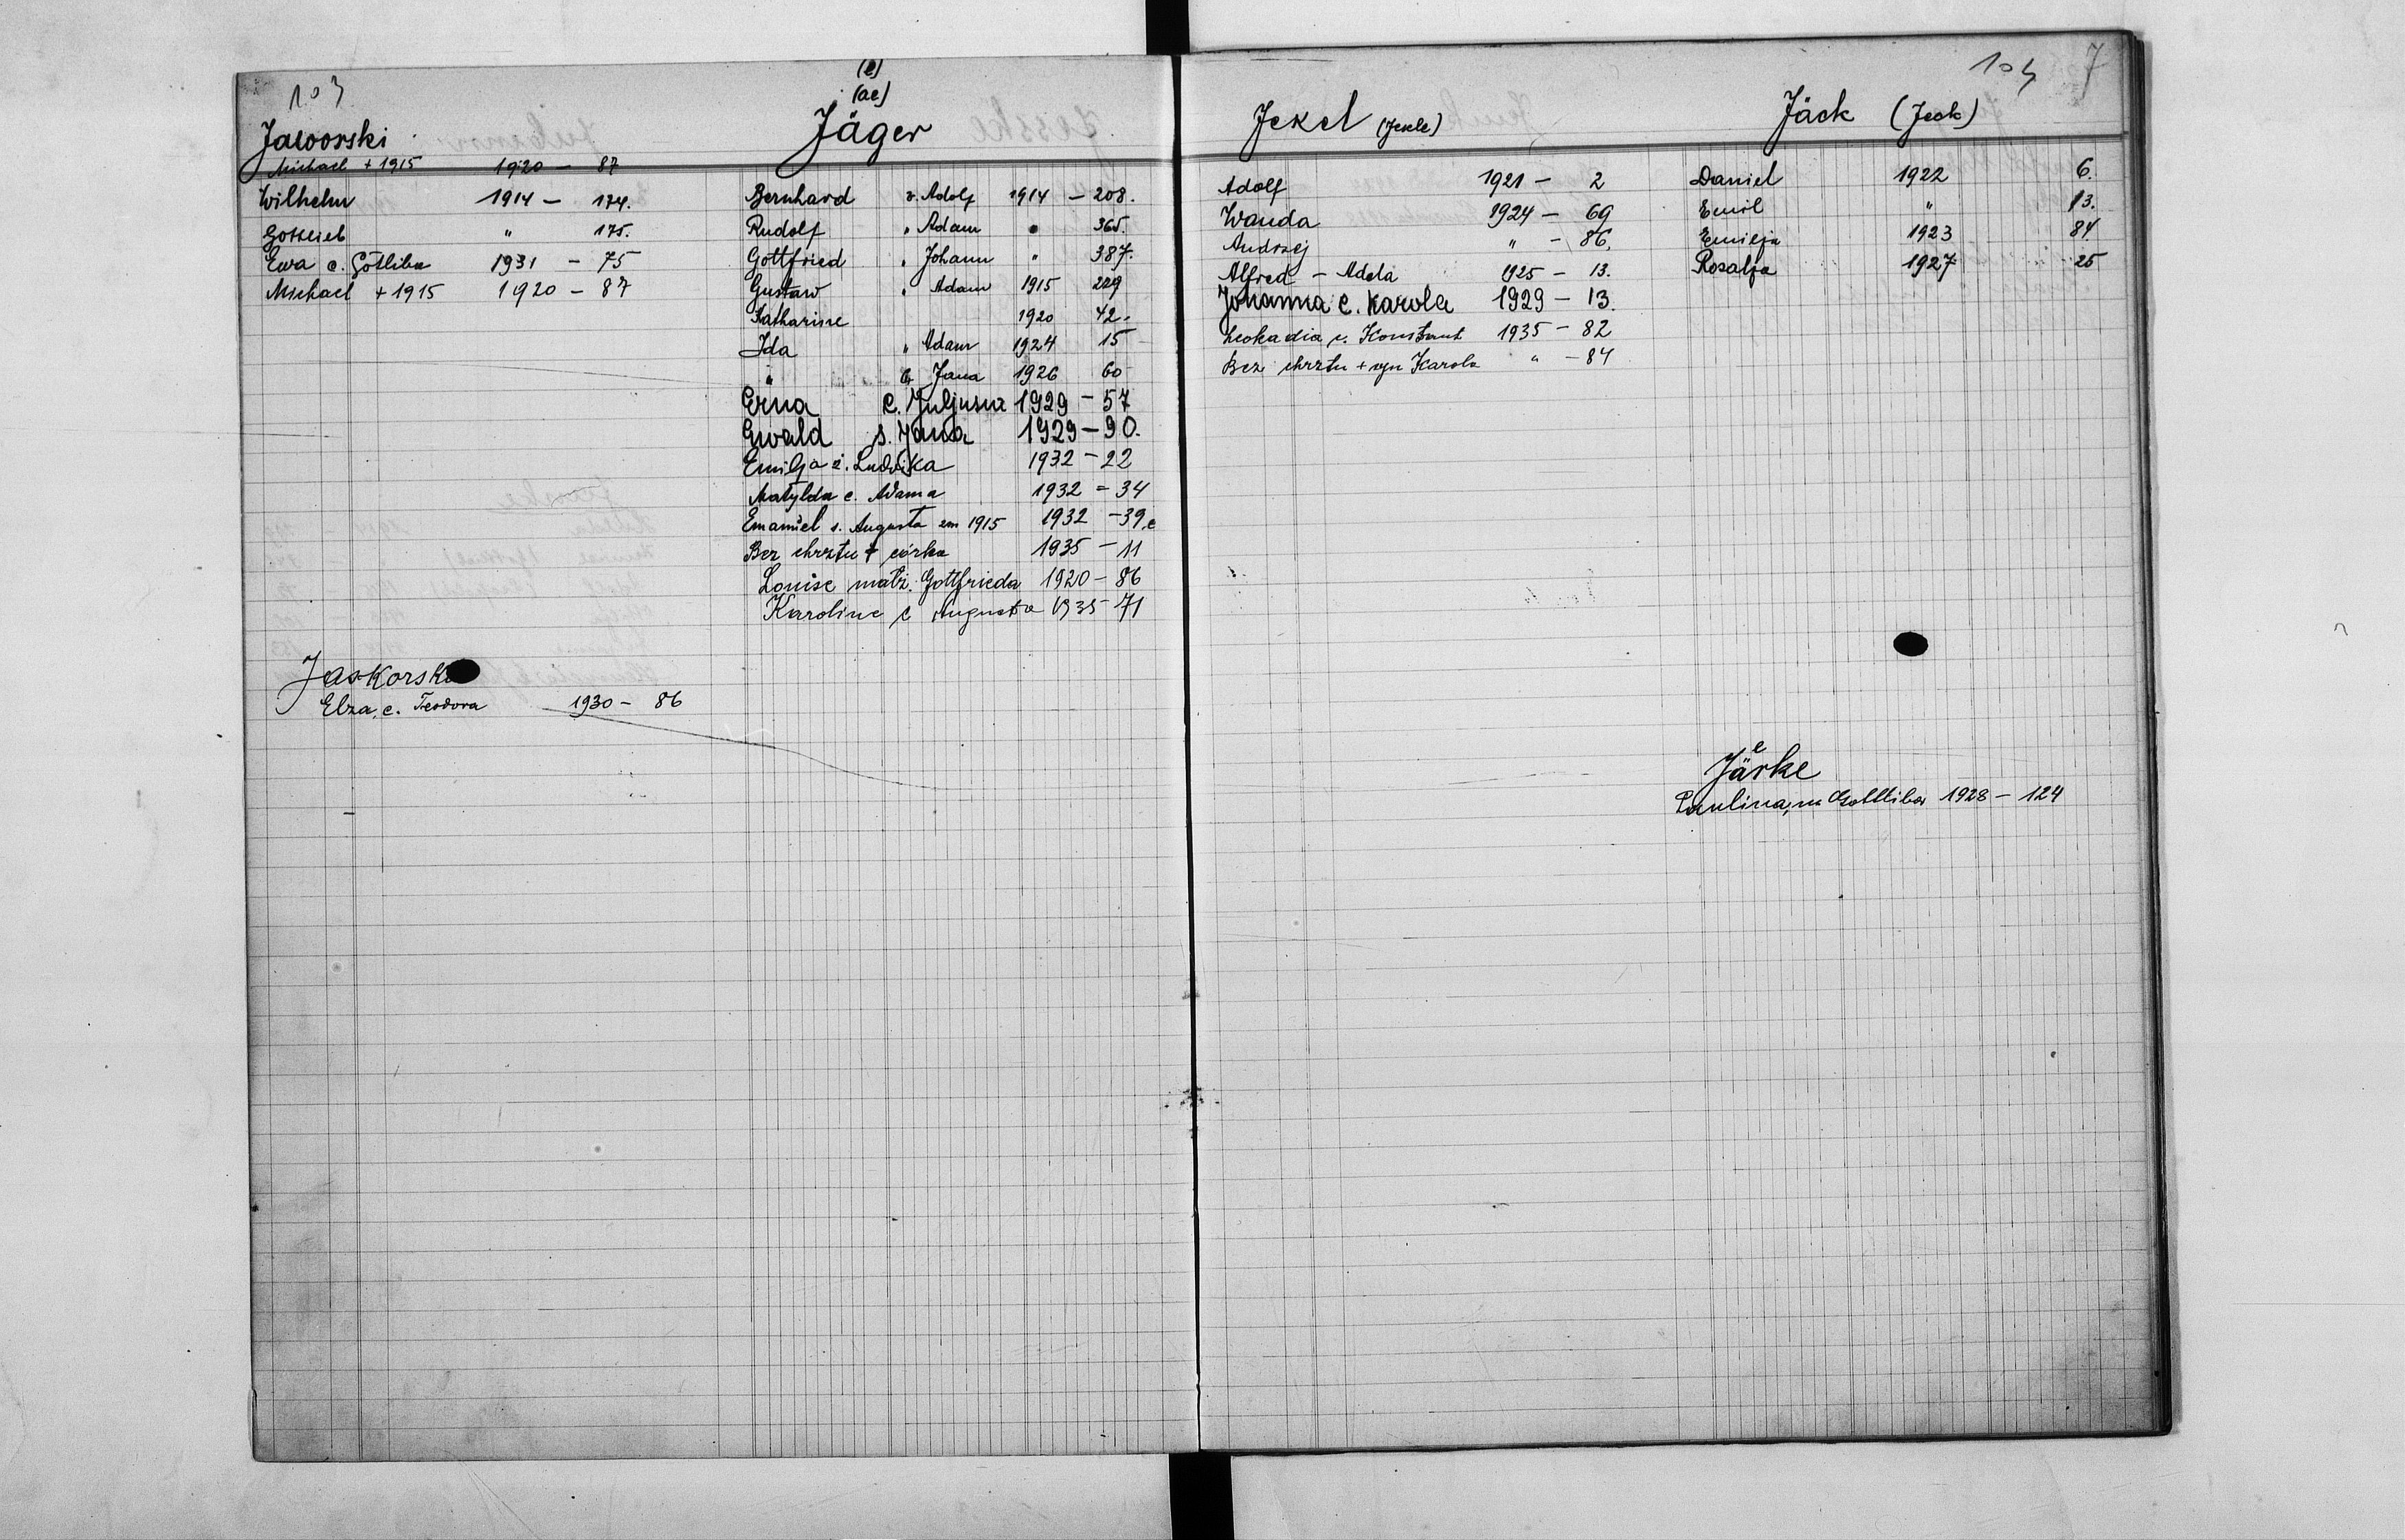 103
Jaworski
Michael + 1915 1920 — 87
Wilhelm 1914 — 174.
Gottlieb " 175.
Ewa c. Gotliba 1931 — 75
Michael + 1915 1920 — 87
Jaskorski
Elza, c. Teodora 1930 — 86
(e)
(ae)
Jäger
Bernhard v. Adolf 1914 — 208.
Rudolf " Adam " 365.
Gottfried " Johann " 387.
Gustaw " Adam 1915 229
Katharine 1920 42.
Ida " Adam 1924 15
" c. Jana 1926 60
Erna c. Juljusza 1929 — 57
Ewald s. Jana 1929 — 90.
Emilja ż. Ludwika 1932 — 22
Matylda c. Adama 1932 = 34
Emaniel s. Augusta zm 1915 1932 — 39
Bez chrztu + córka 1935 — 11
Louise małż. Gottfrieda 1920 — 86
Karoline c Augusta 1935 — 71
104 7
Jekel (Jekle)
Adolf 1921 — 2
Wanda 1924 — 69
Andrzej " — 86.
Alfred — Adela 1925 — 13.
Johanna c. Karola 1929 — 13.
Leokadia c. Konstant 1935 — 82
Bez chrztu + syn Karola " — 84
Jäck (Jeck)
Daniel 1922 6.
Emil " 13.
Emilja 1923 84.
Rosalja 1927 25
e
Järke
Paulina, m Gottliba 1928 — 124